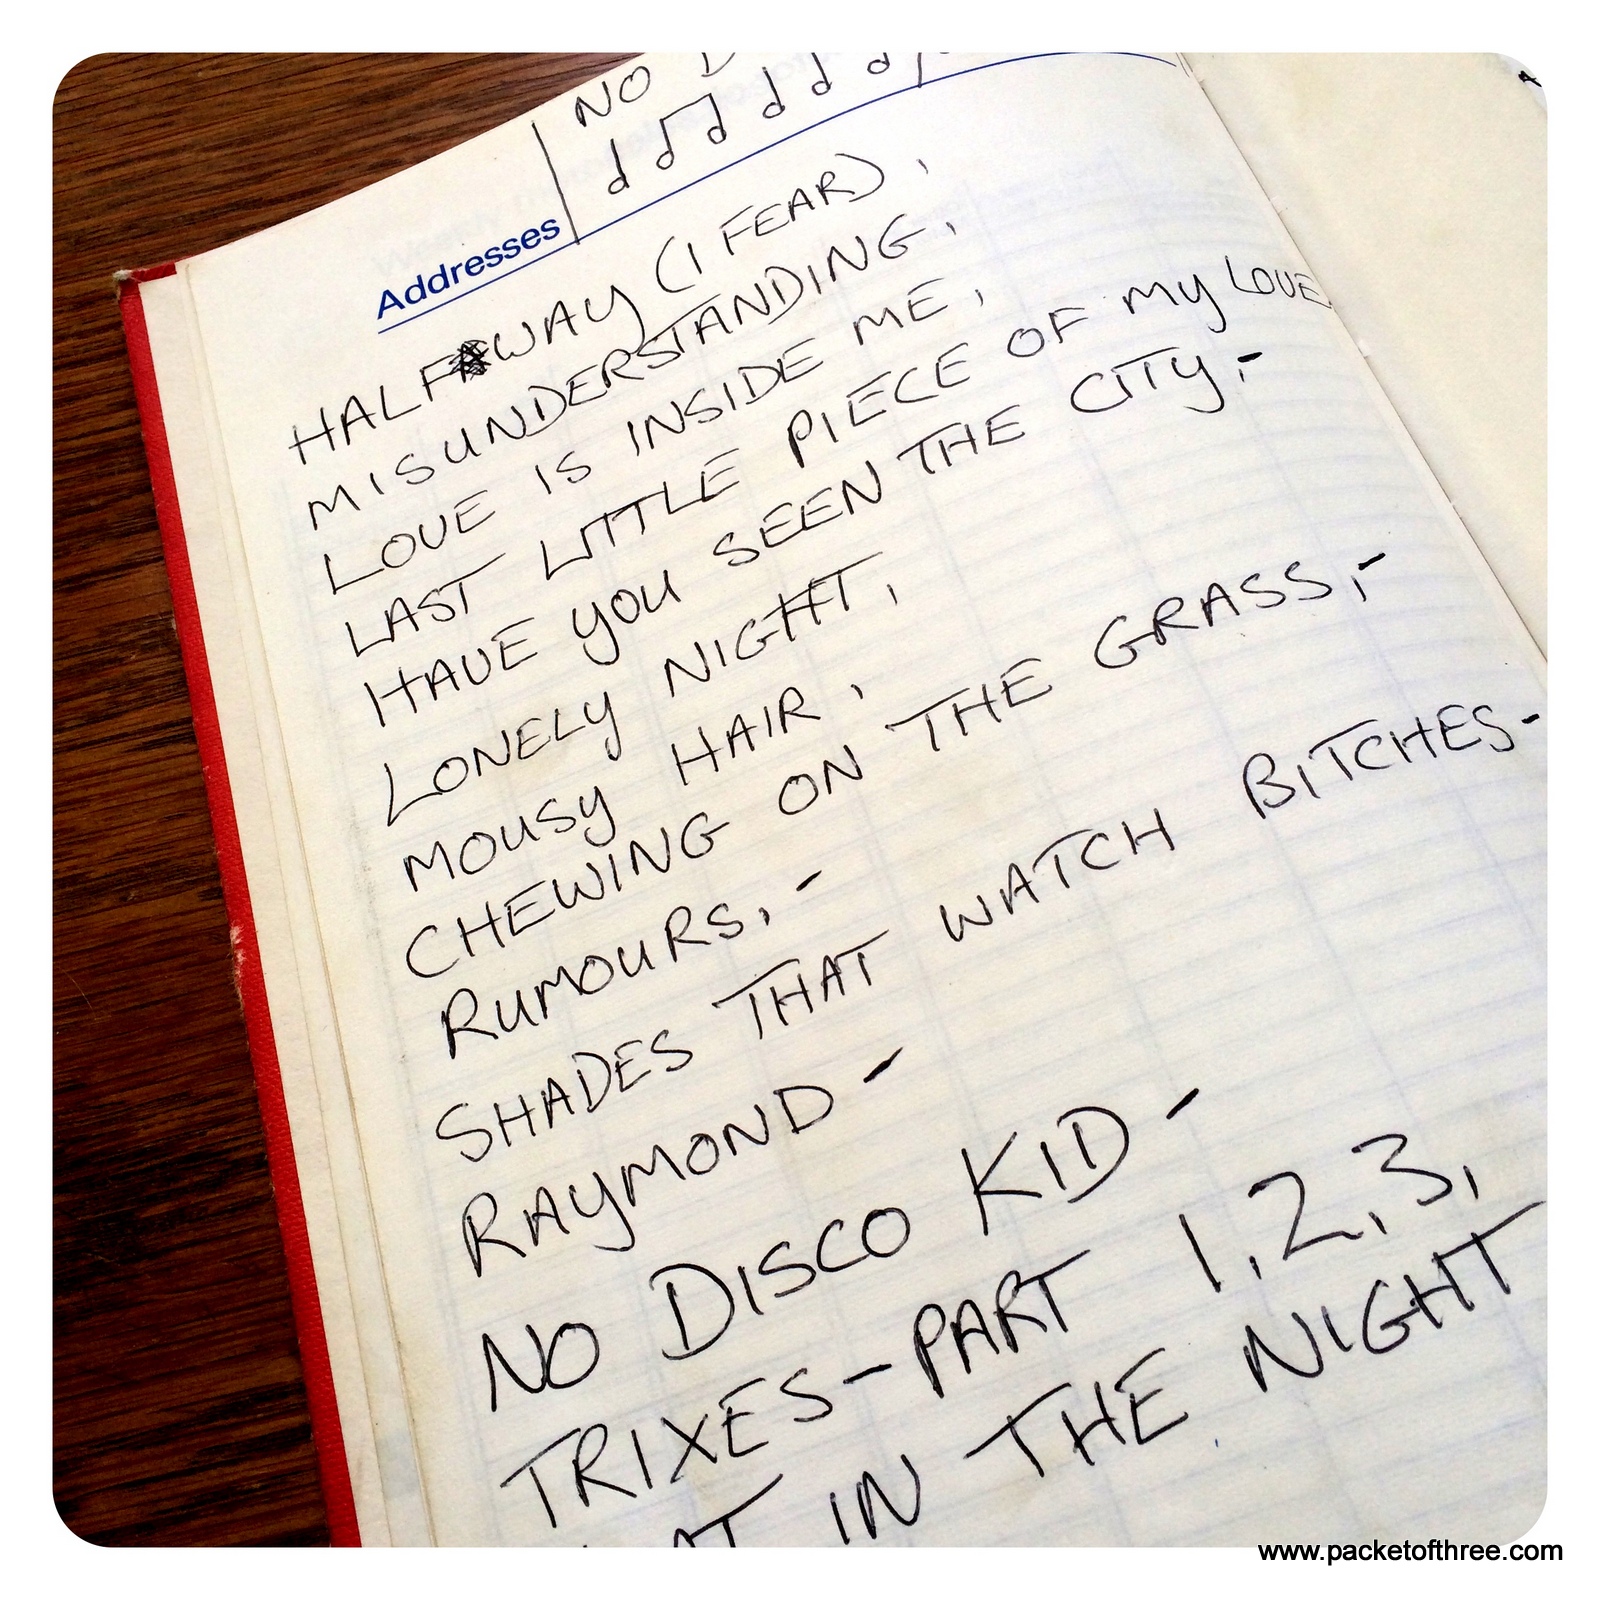 NO
Addresses
HALFWAY (I FEAR),
MISUNDERSTANDING,
LOVE IS INSIDE ME,
LAST LITTLE PIECE OF MY LOVE
HAVE YOU SEEN THE CITY,-
LONELY NIGHT,
MOUSY HAIR,
CHEWING ON THE GRASS,-
RUMOURS,-
SHADES THAT WATCH BITCHES-
RAYMOND-
NO DISCO KID-
TRIXES-PART 1,2,3,
IN THE NIGHT
www.packetofthree.com